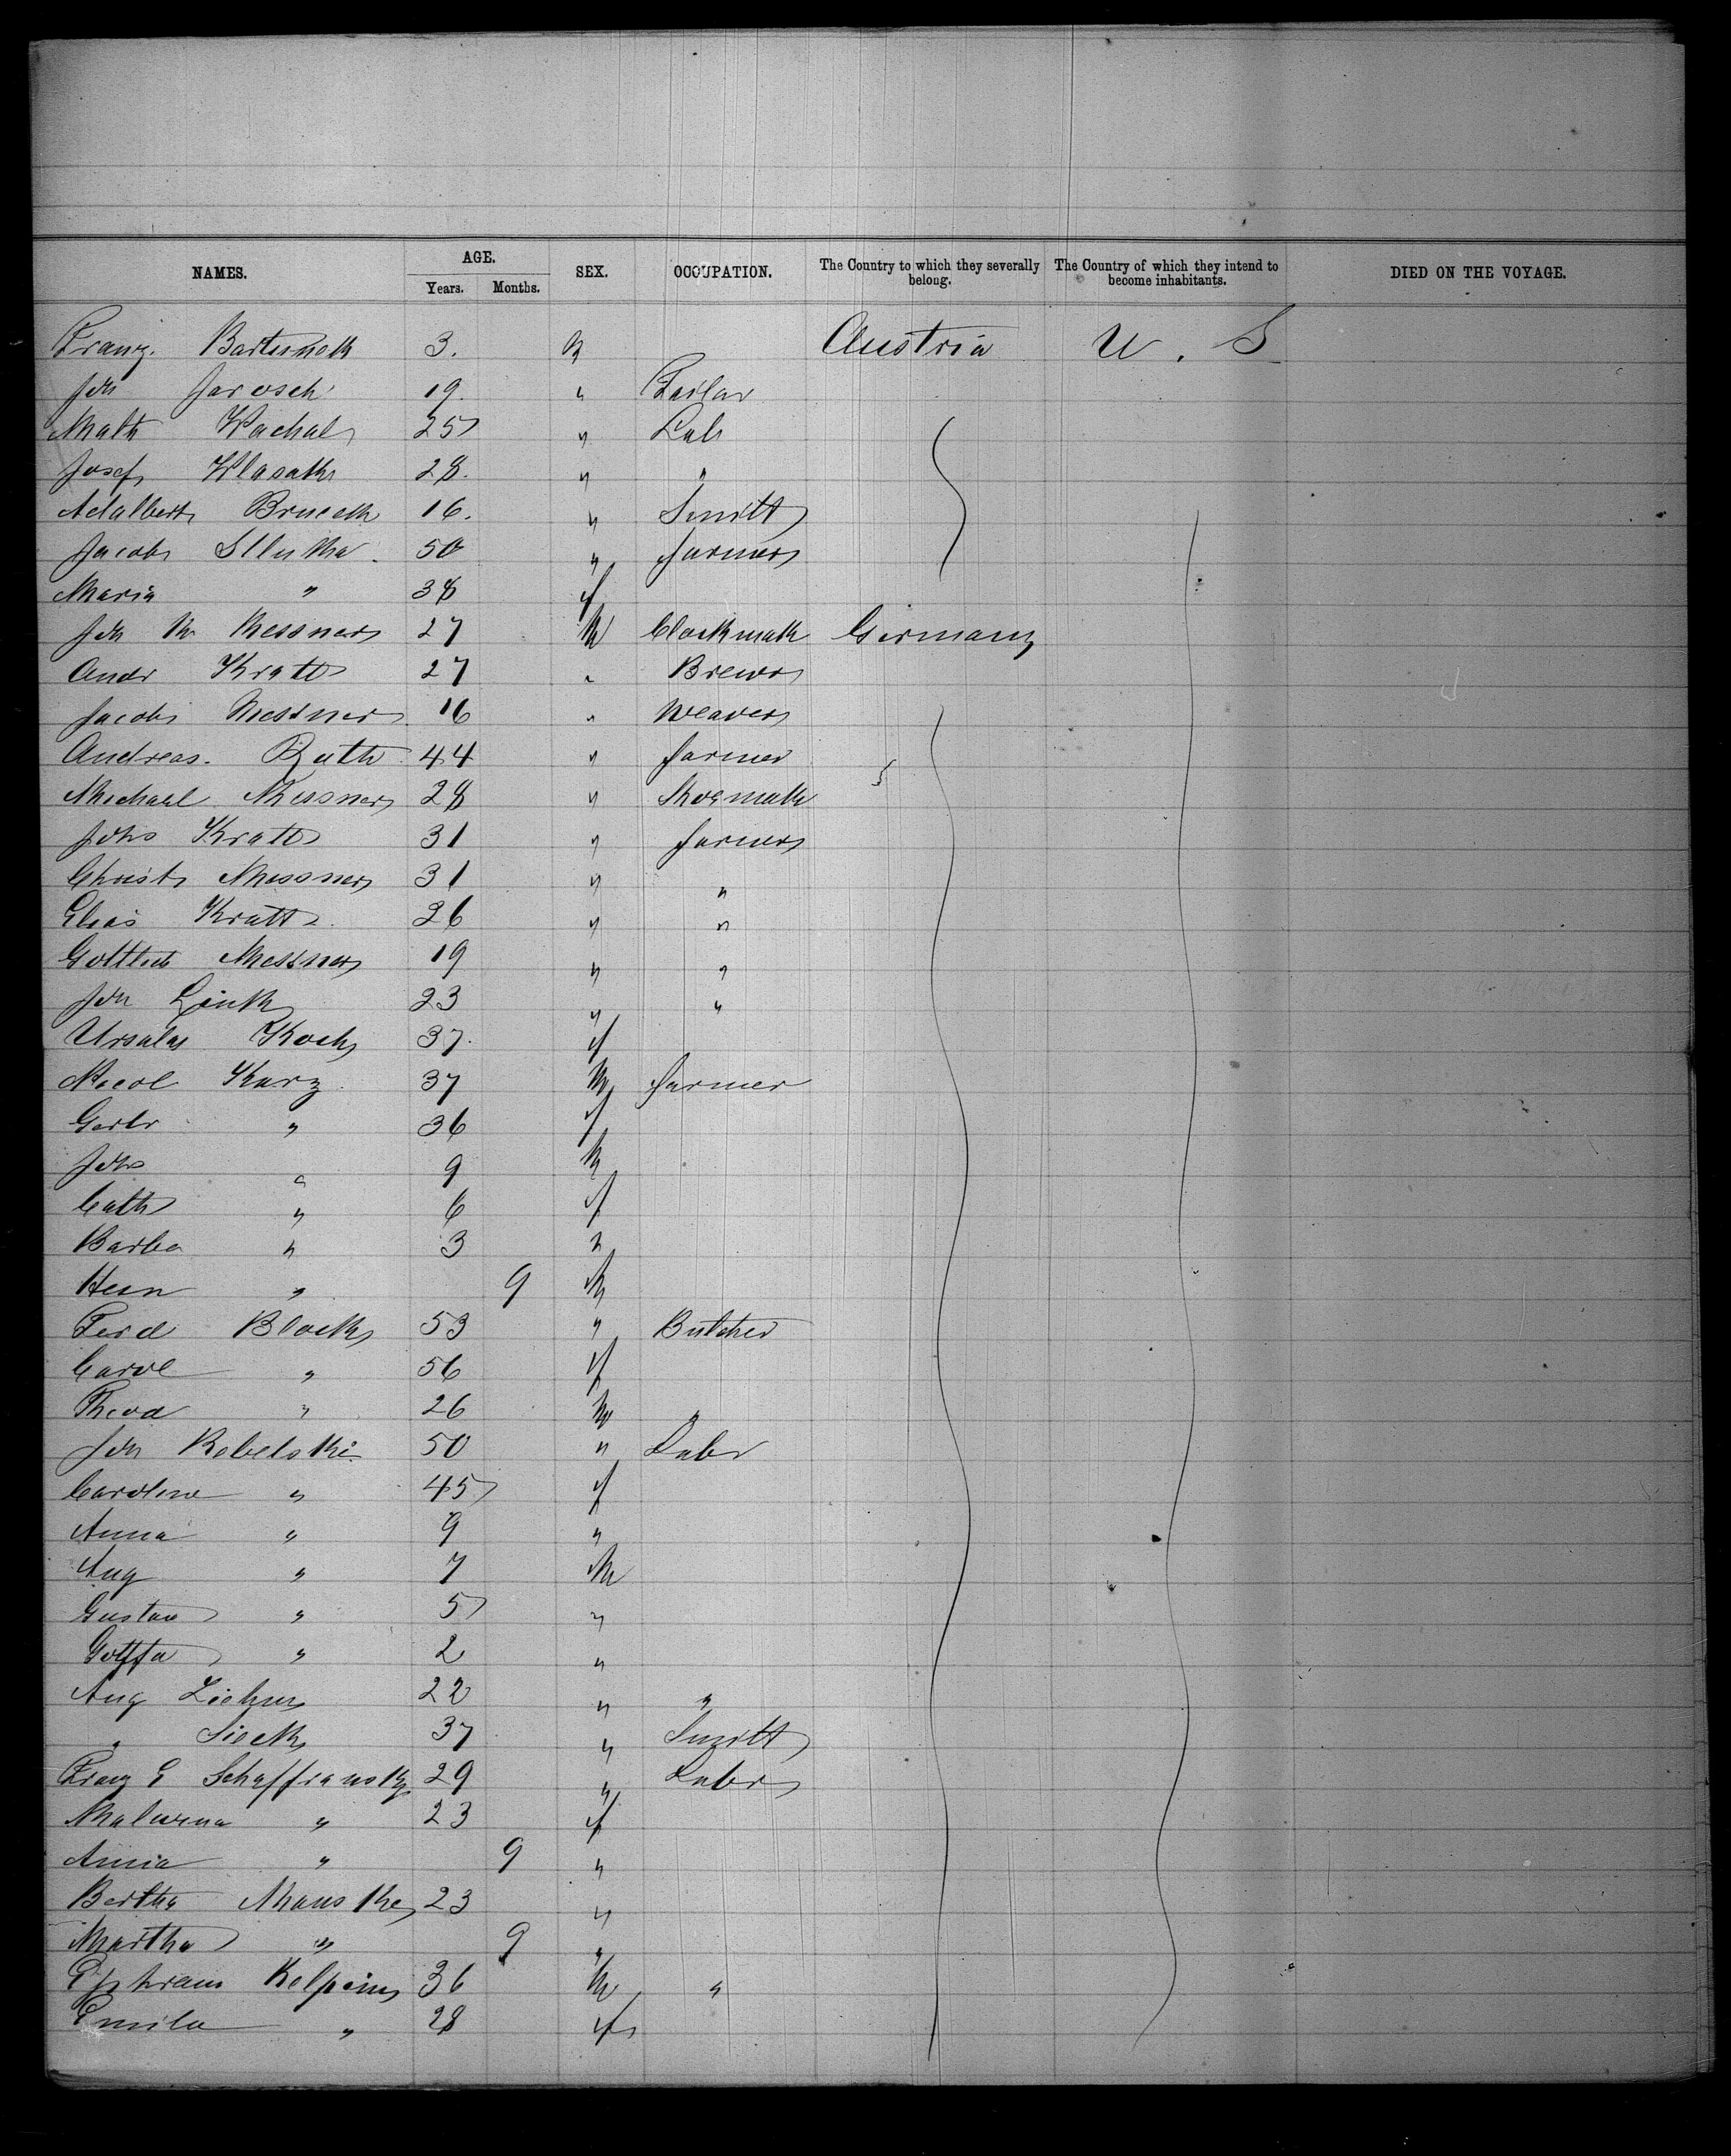 NAMES. AGE. Years. Months. SEX. OCCUPATION. The Country to which they severally belong. The Country of which they intend to become inhabitants. DIED ON THE VOYAGE.
Franz. Bartunek 3. M Austria U. S
Joh Jarosch 19. " Tailor
Math Wachal 25 " Lab
Josef Wlasak 28. " "
Adalbert 16. " Smitt
Jacob 50 " farmer
Maria " 38 f
Joh M Messner 27 M Clockmak Germany
Andr Kratt 27 " Brewer
Jacob Messner 16 " Weaver
Andreas. Ruth 44 " farmer
Michael Messner 28 " Shoemak
Johs Kratt 31 " farmer
Christ Messner 31 " "
Elias Kratt 26 " "
Gottlieb Messner 19 " "
Joh Link 23 " "
Ursula Koch 37. f
Nicol Kurz 37 M farmer
Gertr " 36 f
Johs " 9 M
Cath " 6 f
Barba " 3 "
Hein " 9 M
Ferd Block 53 " Butcher
Carol " 56 f
Theod " 26 M "
Joh Kobelski 50 " Labr
Caroline " 45 f
Anna " 9 "
Aug " 7 M
Gustav " 5 "
" 2 "
Aug 22 " "
" Sieck 37 " Smitt
Franz E Schaffransky 29 " Labr
Malwina " 23 f
Anna " 9 "
Bertha Manske 23 "
Martha " 9 "
Ephraim Kelpin 36 M "
Emila " 28 f